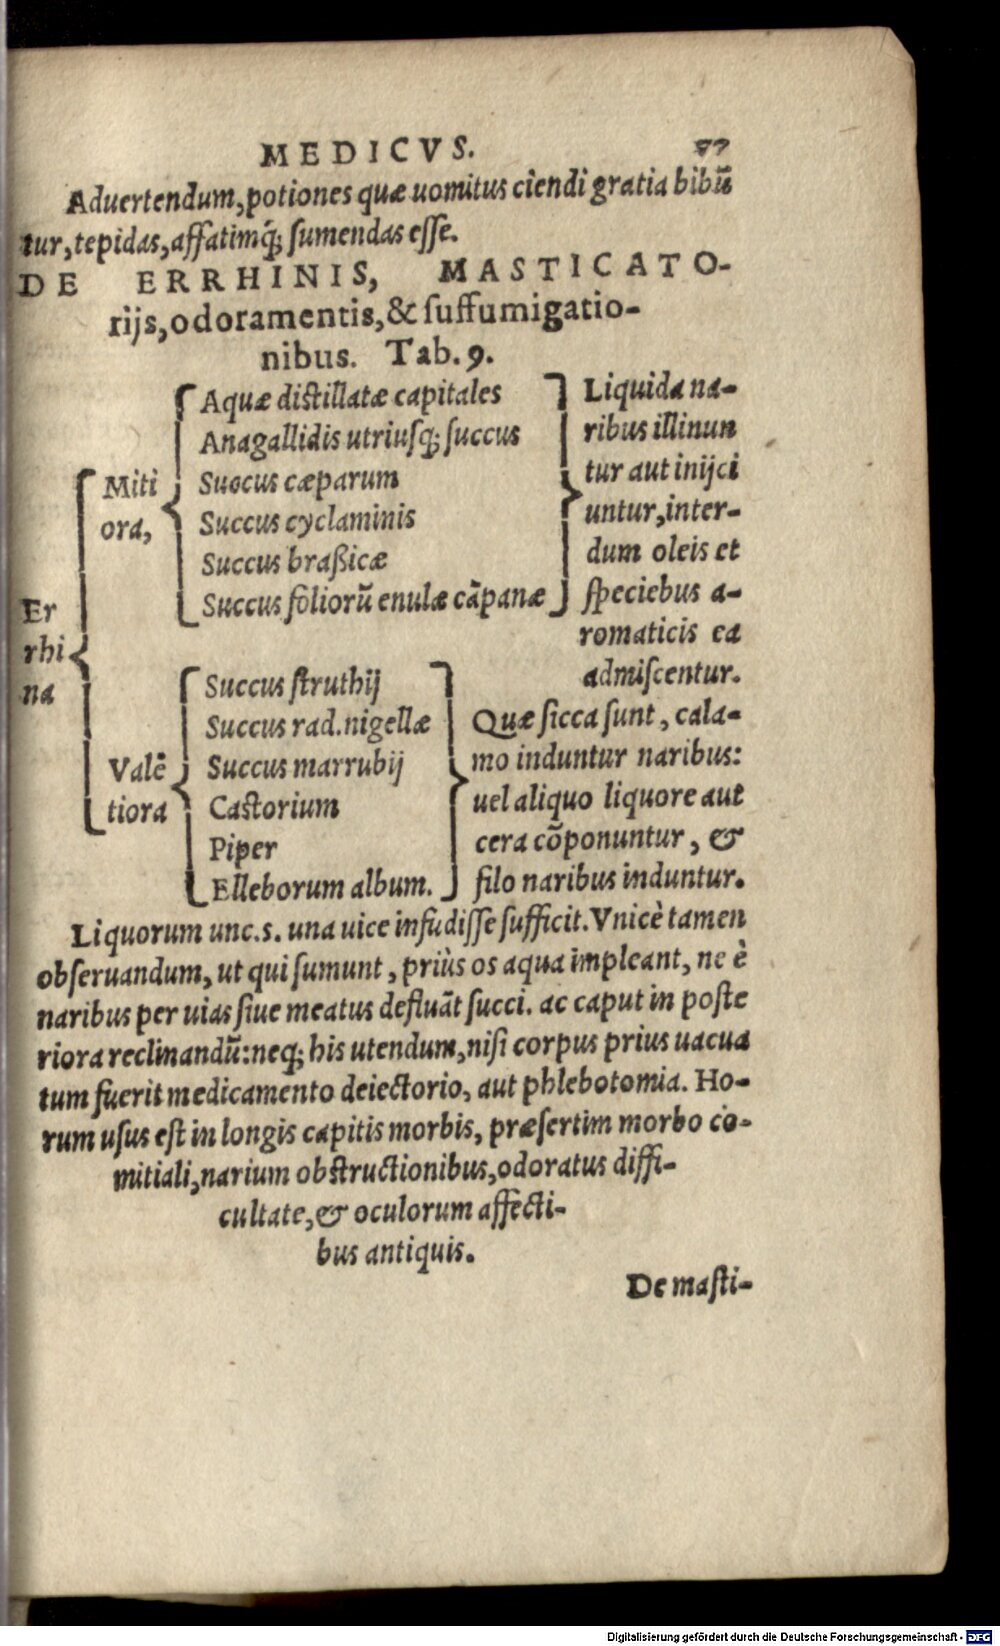 MEDICVS.
Aduertendum, potiones quæ uomitus ciendi gratia bibũ
tur, tepidas, affatimq́; sumendas esse.
DE ERRHINIS, MASTICATO-
rijs, odoramentis, & suffumigatio-
nibus. Tab. 9.
Er
rhi
na
Miti
ora,
Aquæ distillatæ capitales
Anagallidis utriusq; succus
Succus cæparum
Succus cyclaminis
Succus braßicæ
Succus foliorũ enulæ cãpanæ
Liquida na-
ribus illinun
tur aut inijci
untur, inter-
dum oleis et
speciebus a-
romaticis ea
admiscentur.
Valẽ
tiora
Succus struthij
Succus rad. nigellæ
Succus marrubij
Castorium
Piper
Elleborum album.
Quæ sicca sunt, cala-
mo induntur naribus:
uel aliquo liquore aut
cera cõponuntur, &
filo naribus induntur.
Liquorum unc.s. una uice infudisse sufficit. Vnicè tamen
obseruandum, ut qui sumunt, priùs os aqua impleant, ne è
naribus per uias siue meatus defluãt succi. ac caput in poste
riora reclinandũ: neq; his utendum, nisi corpus prius uacua
tum fuerit medicamento deiectorio, aut phlebotomia. Ho-
rum usus est in longis capitis morbis, præsertim morbo co-
mitiali, narium obstructionibus, odoratus diffi-
cultate, & oculorum affecti-
bus antiquis.
De masti-
Digitalisierung gefördert durch die Deutsche Forschungsgemeinschaft - DFG